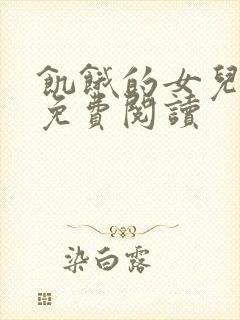 飢餓的女兒
免費閱讀
染白露